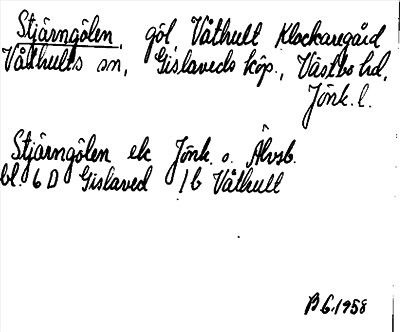 Stjärngölen, göl, Våthult Klockaregård
Våthults sn, Gislaveds köp., Västbo hd,
Jönk. l.
Stjärngölen ek Jönk. o. Älvsb.
bl. 6 D Gislaved 1b Våthult
B 6.1958